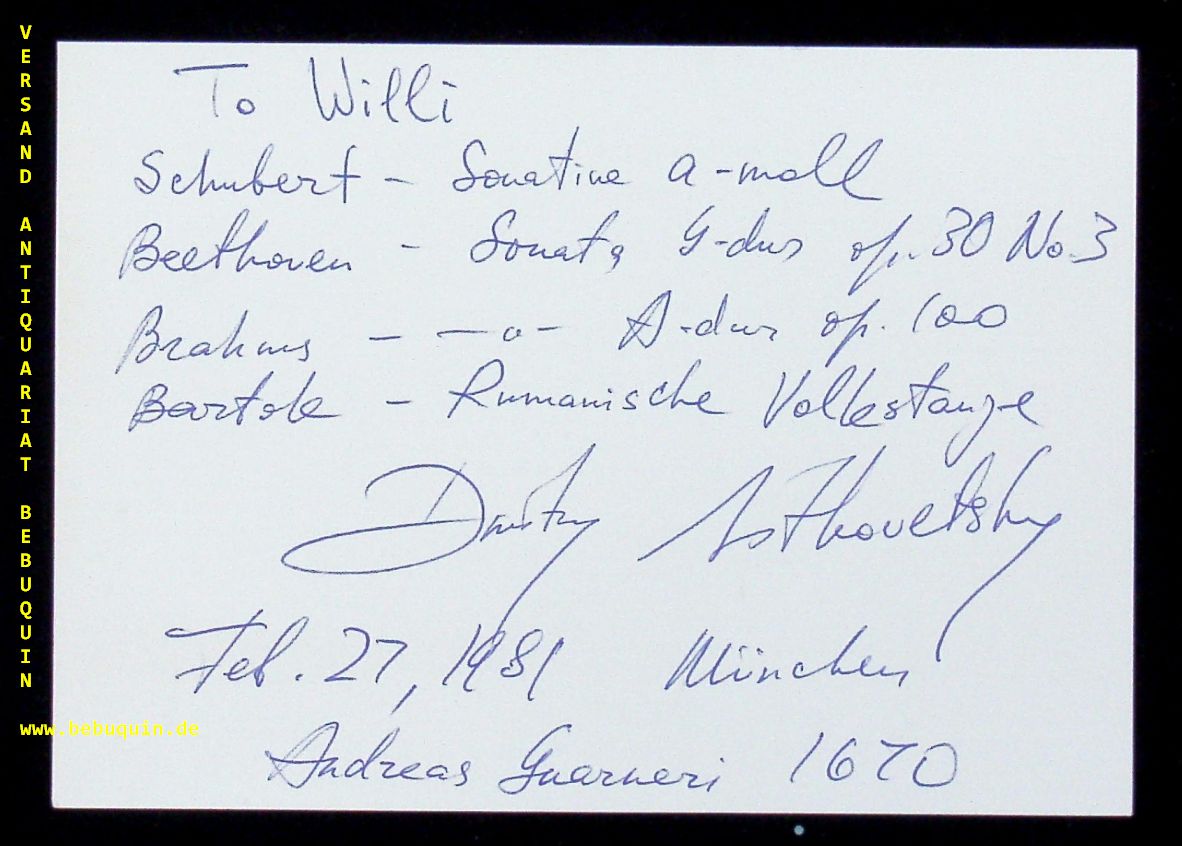 To Willi
Schubert - Sonatine a-moll
Beethoven - Sonata G-dur op. 30 No. 3
Brahms - -o- A-dur op. 100
Bartok - Rumanische Volkstanze
Dmitry Sitkovetsky
Feb. 27, 1981 München
Andreas Guarneri 1670
VERSAND ANTIQUARIAT BEBUQUIN
www.bebuquin.de